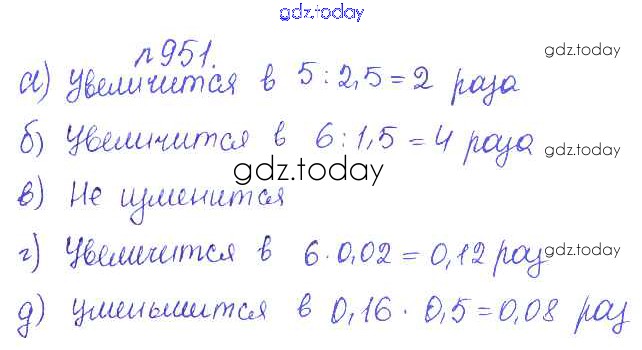 gdz.today
№951.
gdz.today
а) Увеличится в 5:2,5=2 раза
б) Увеличится в 6:1,5=4 раза
gdz.today
gdz.today
в) Не изменится
г) Увеличится в 6·0,02=0,12 раз
gdz.today
д) уменьшится в 0,16·0,5=0,08 раз
gdz.today